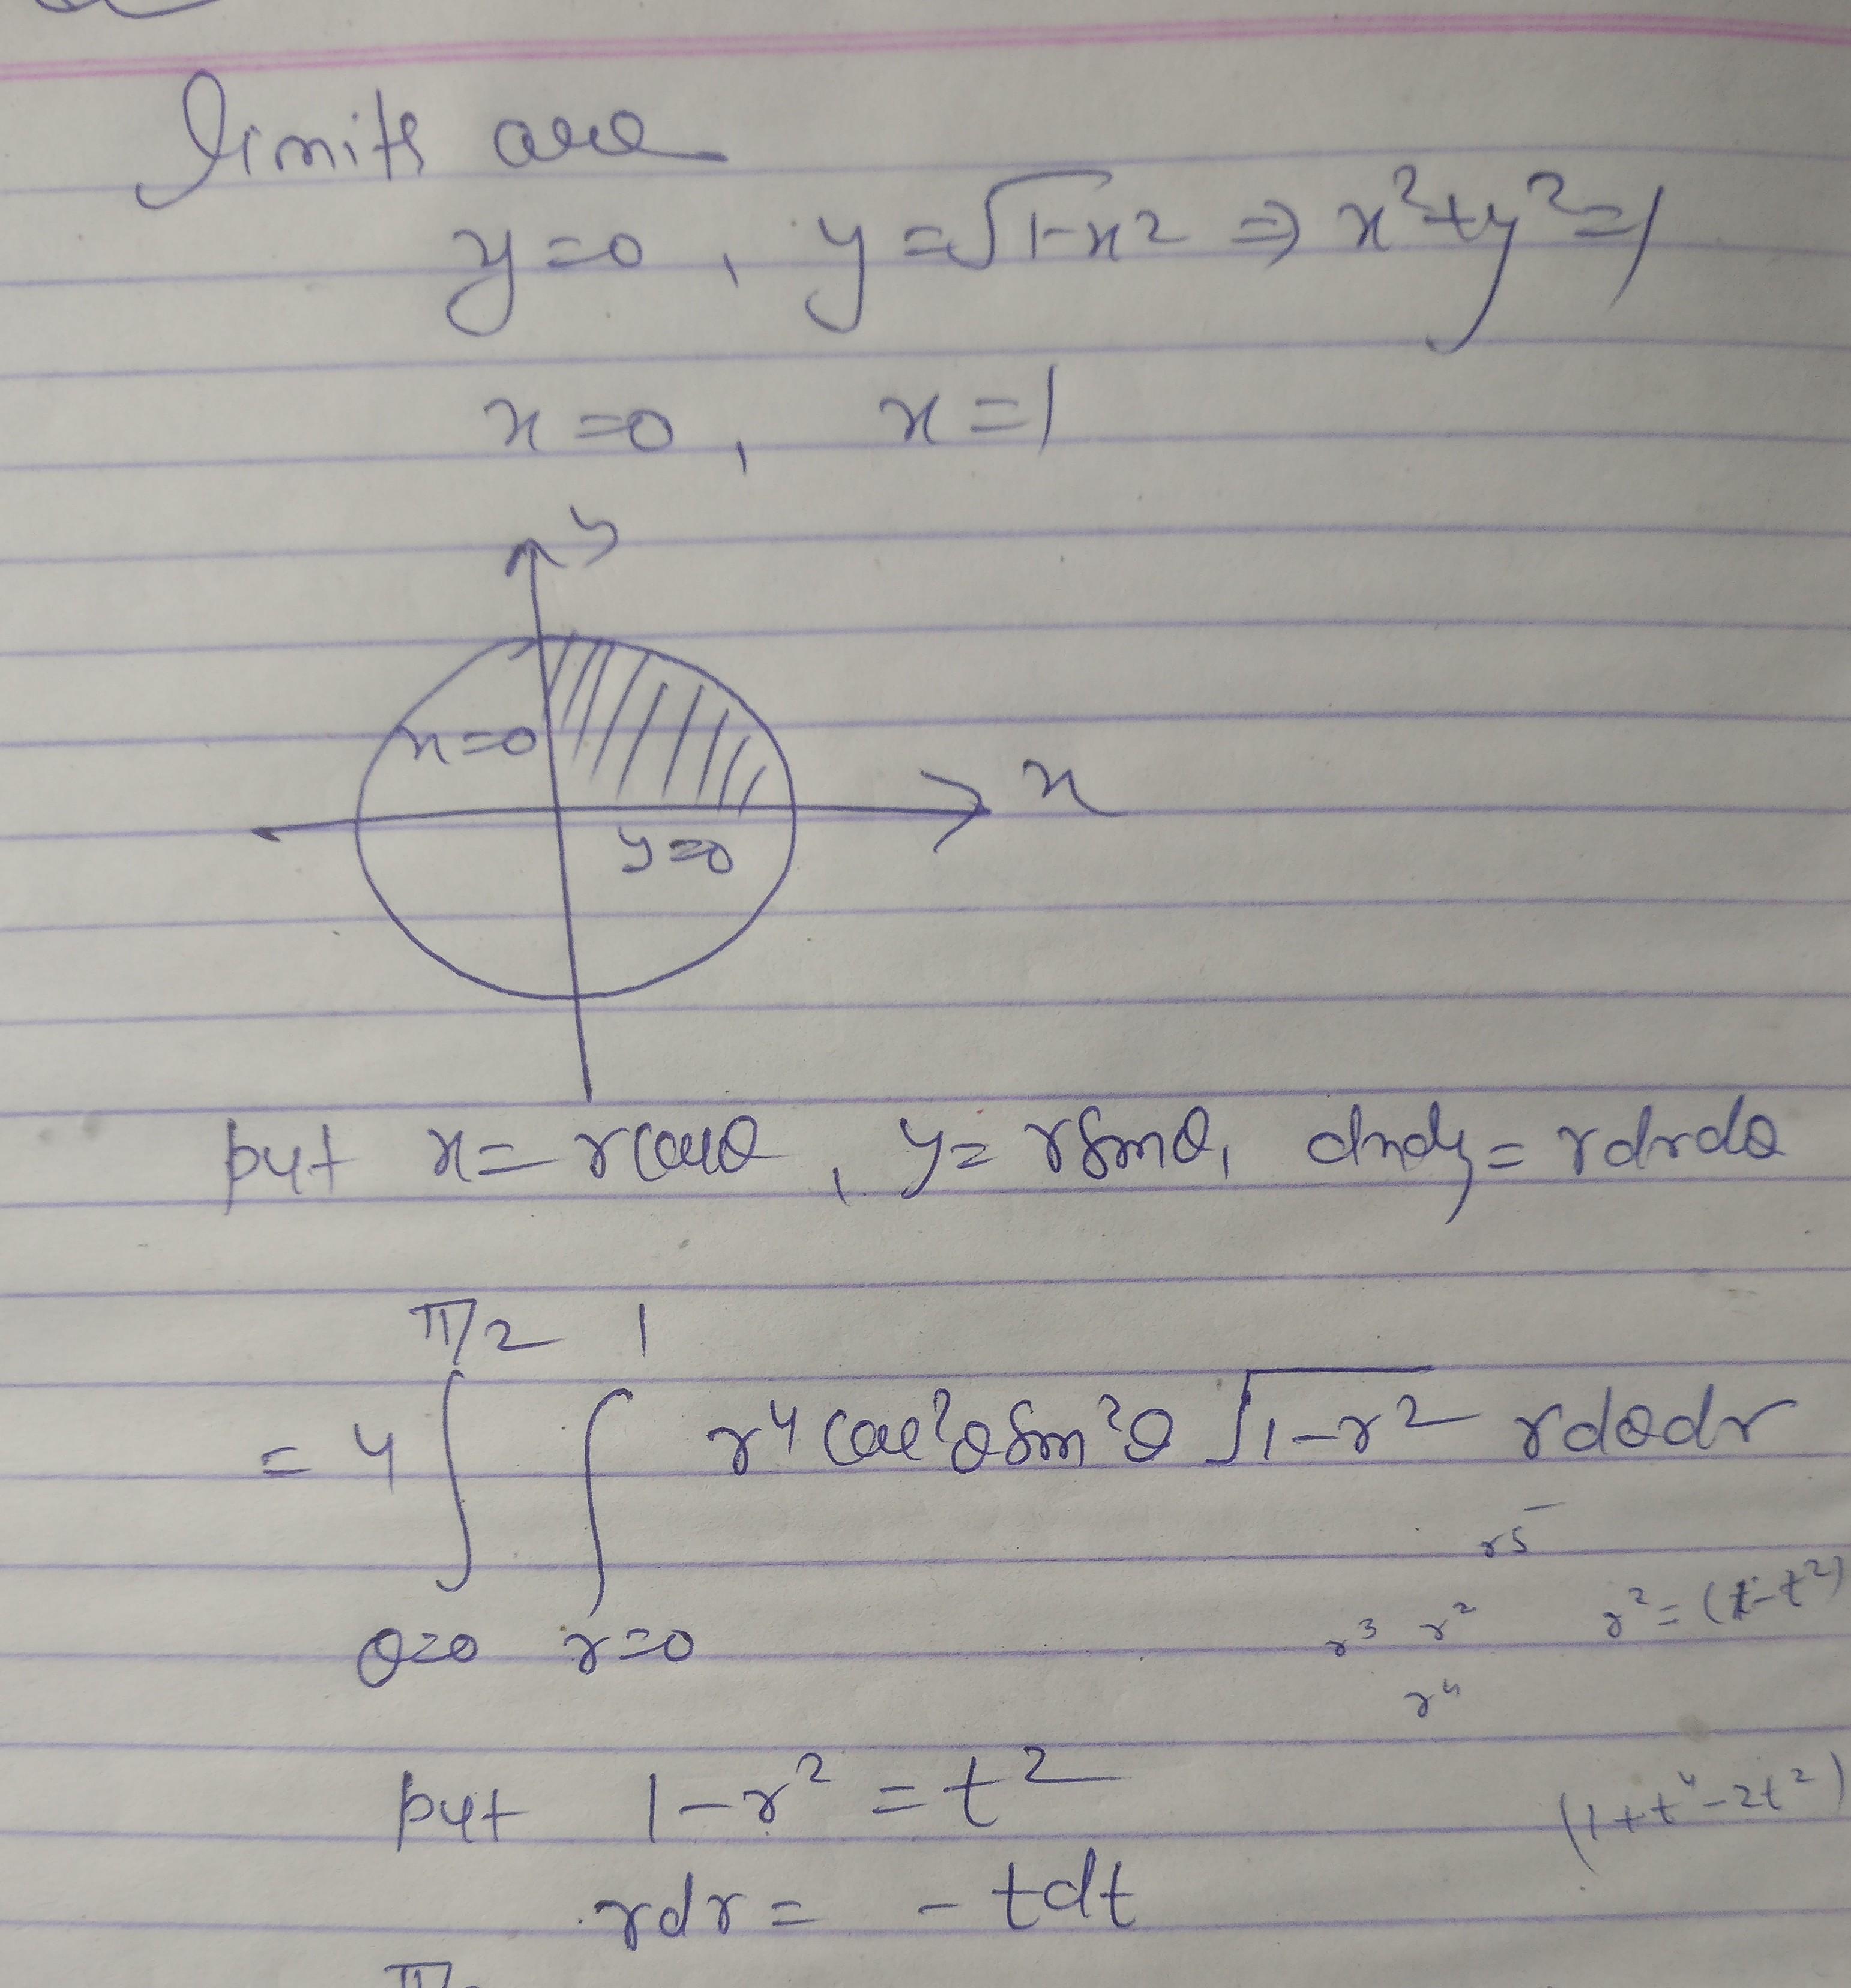 limits are
y=0, y=√1-x2 ⇒ x²+y²=1
x=0, x=1
y
x=0
x
y=0
put x= rcosθ, y= rsinθ, dxdy= rdrdθ
π/2 1
= 4∫ ∫ r⁴ cos²θ sin²θ √1-r² rdθdr
θ=0 r=0
r5
r3 r² r²=(1-t²)
r⁴
put 1-r² = t²
(1+t⁴-2t²)
rdr= -tdt